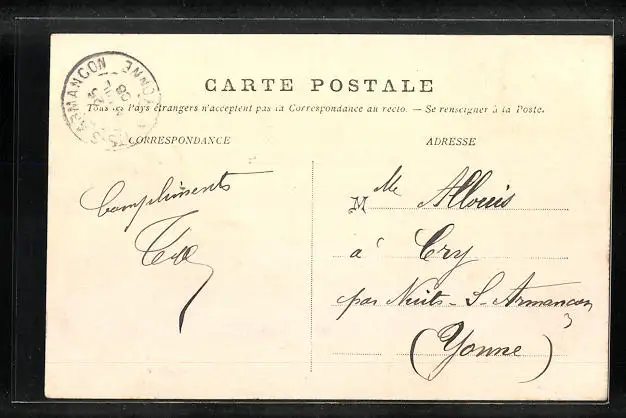 ARMANÇON YONNE
CARTE POSTALE
Tous les Pays étrangers n'acceptent pas la Correspondance au recto. — Se renseigner à la Poste.
CORRESPONDANCE
ADRESSE
Compliments
M Mlle Allouis
à Cry
par Nuits-S-Armançon
(Yonne)